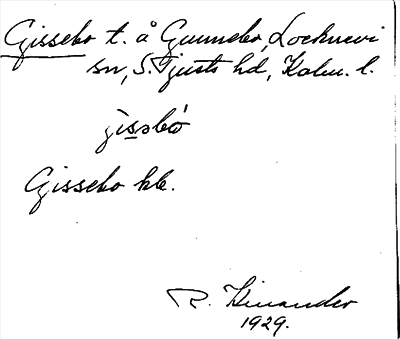 Gissebo t. å Gunnebo, Locknevi
sn, S. Tjusts hd, Kalm. l.
jisəbó
Gissebo kb.
R. Kinander
1929.